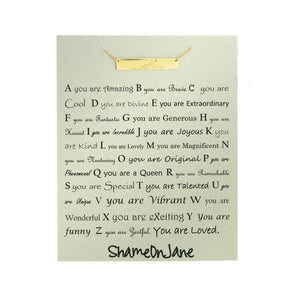 A you are Amazing B you are Brave C you are
Cool D you are Divine E you are Extraordinary
F you are Fantastic G you are Generous H you are
Honest I you are Incredible J you are Joyous K you
are Kind L you are Lovely M you are Magnificent N
you are Nurturing O you are Original P you are
Phenomenal Q you are a Queen R you are Remarkable
S you are Special T you are Talented U you
are Unique V you are Vibrant W you are
Wonderful X you are eXciting Y You are
funny Z you are Zestful. You are Loved.
ShameOnJane